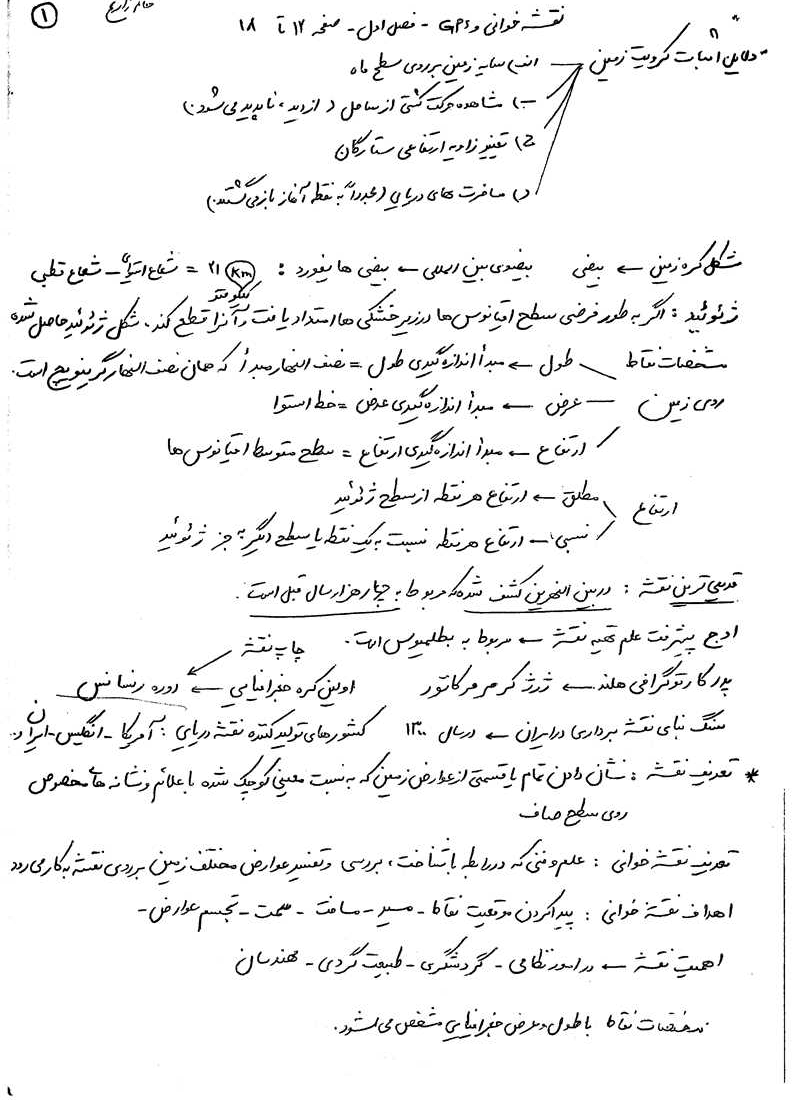 ۱
خانم زارع
نقشه خوانی و GPS - فصل اول - صفحه ۱۲ تا ۱۸
دلایل اثبات کرویت زمین الف) سایه زمین بر روی سطح ماه
ب) مشاهده حرکت کشتی از ساحل (از دید، ناپدید می شود.)
ج) تغییر زاویه ارتفاعی ستارگان
د) مسافرت های دریایی (مجدداً به نقطه آغاز باز می گشتند.)
شکل کره زمین ← بیضی بیضوی بین المللی ← بیضی هایفورد : ۲۱ km = شعاع استوایی - شعاع قطبی
کیلومتر
ژئوئید : اگر به طور فرضی سطح اقیانوس ها در زیر خشکی ها امتداد یافت و آنرا قطع کند، شکل ژئوئید حاصل شده
مشخصات نقاط طول ← مبدأ اندازه گیری طول = نصف النهار مبدأ که همان نصف النهار گرینویچ است.
روی زمین عرض ← مبدأ اندازه گیری عرض = خط استوا
ارتفاع ← مبدأ اندازه گیری ارتفاع = سطح متوسط اقیانوس ها
ارتفاع مطلق ← ارتفاع هر نقطه از سطح ژئوئید
نسبی ← ارتفاع هر نقطه نسبت به یک نقطه یا سطح دیگر به جز ژئوئید
قدیمی ترین نقشه : در بین النهرین کشف شده که مربوط به چهار هزار سال قبل است.
اوج پیشرفت علم تهیه نقشه ← مربوط به بطلمیوس است. چاپ نقشه
پدر کارتوگرافی هلند ← ژرژ کرمر مرکاتور اولین کره جغرافیایی ← دوره رنسانس
سنگ بنای نقشه برداری در ایران ← در سال ۱۳۰۰ کشورهای تولید کننده نقشه دریایی : آمریکا - انگلیس - ایران و
* تعریف نقشه : نشان دادن تمام یا قسمتی از عوارض زمین که به نسبت معینی کوچک شده با علائم و نشانه های مخصوص
روی سطح صاف
تعریف نقشه خوانی : علم و فنی که در رابطه با شناخت، بررسی و تفسیر عوارض مختلف زمین بر روی نقشه به کار می رود
اهداف نقشه خوانی : پیدا کردن موقعیت نقاط - مسیر - مسافت - سمت - تجسم عوارض -
اهمیت نقشه ← در امور نظامی - گردشگری - طبیعت گردی - مهندسان
مختصات نقاط با طول و عرض جغرافیایی مشخص می شود.